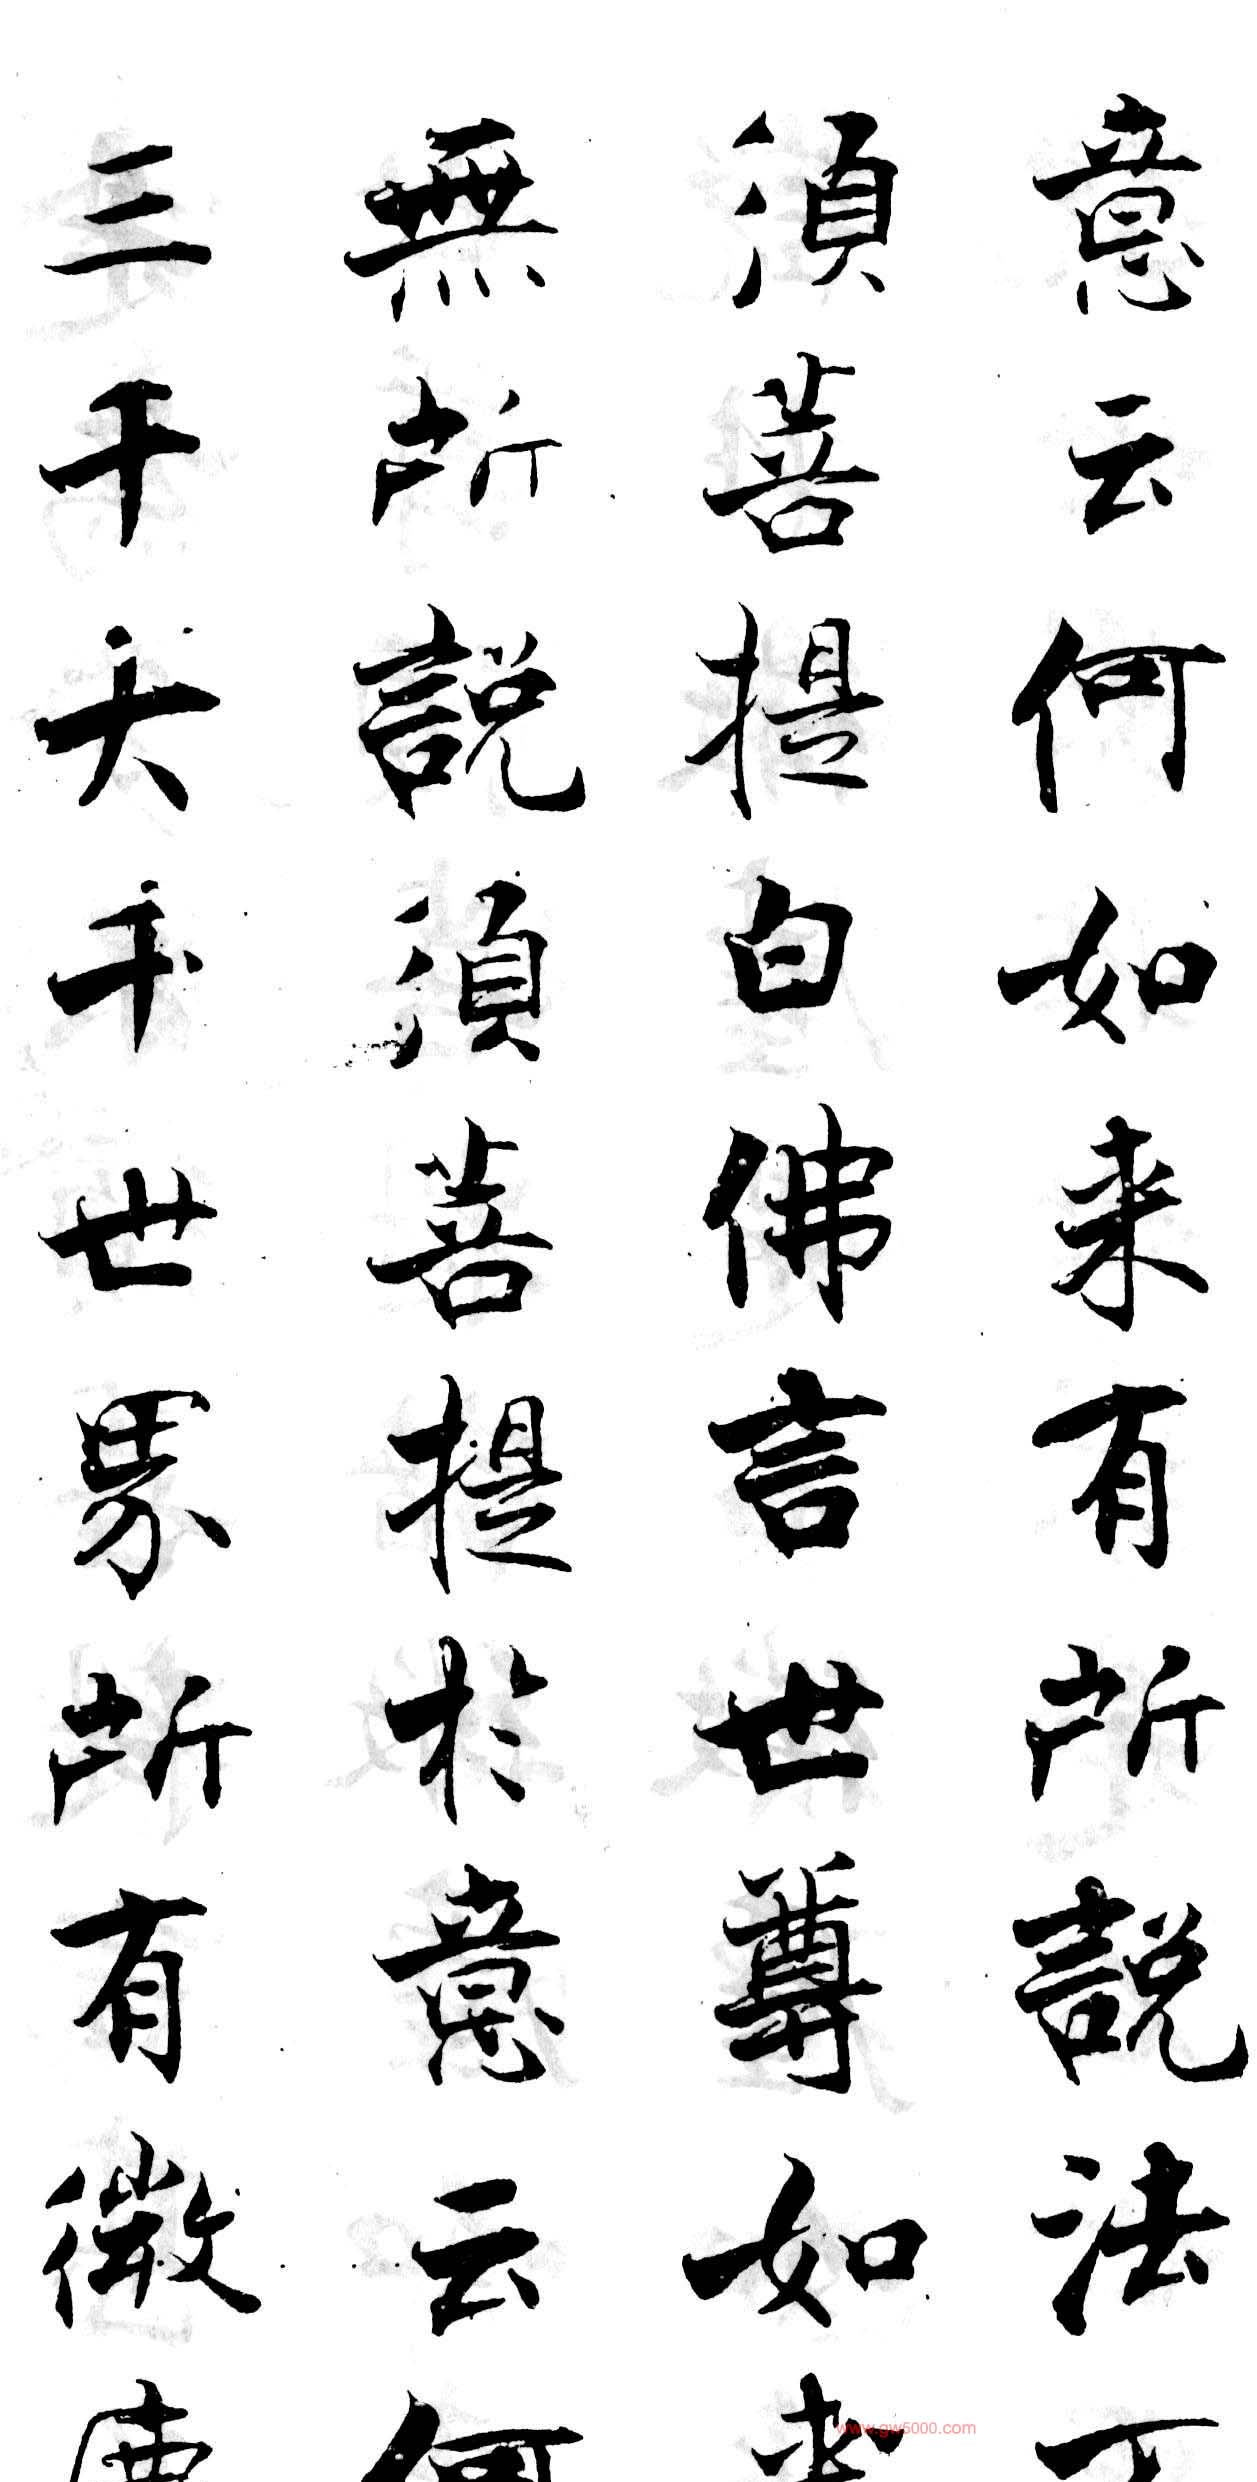 意云何如来有所說法不
須菩提白佛言世尊如来
無所說須菩提於意云何
三千大千世界所有微塵
www.gw5000.com